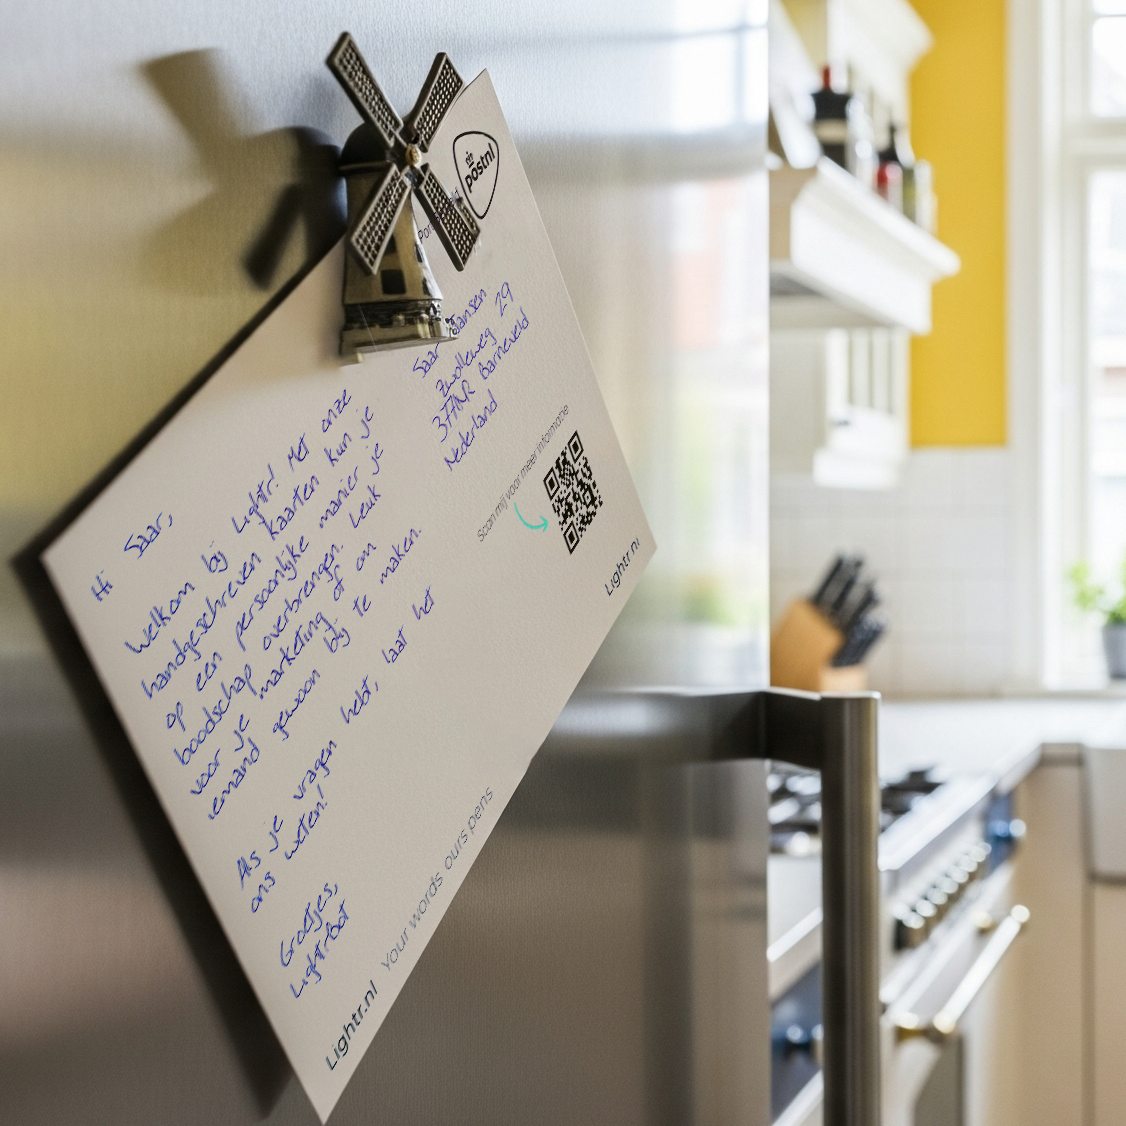 postnl
Hi Saar,
Welkom bij Lightr! Met onze
handgeschreven kaarten kun je
op een persoonlijke manier je
boodschap overbrengen. Leuk
voor je marketing of om
iemand gewoon blij te maken.
Als je vragen hebt, laat het
ons weten!
Groetjes,
Lightrbot
Saar Jansen
Zwolleweg 29
Barneveld
Nederland
Scan mij voor meer informatie
Lightr.nl
Lightr.nl Your words ours pens